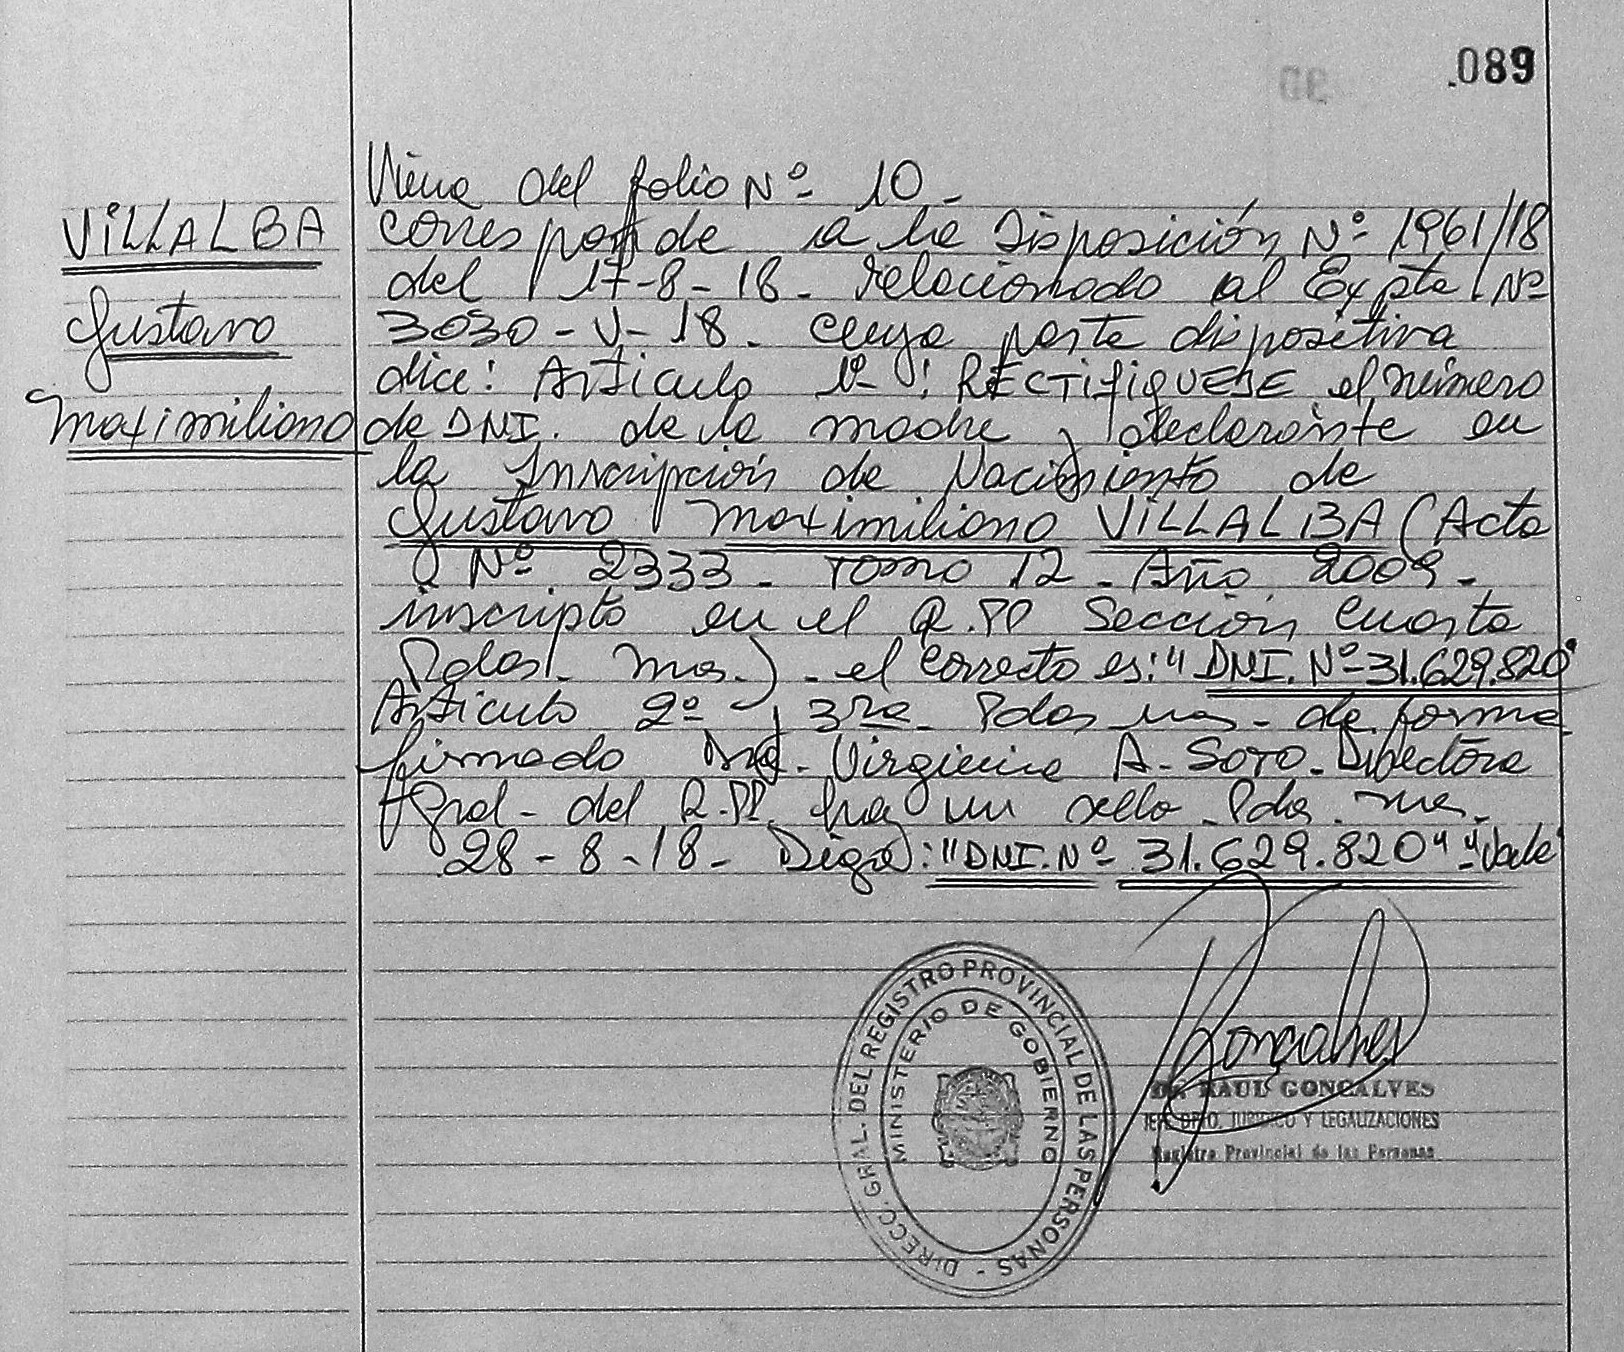 .089
Viene del folio Nº 10 -
VILLALBA
Gustavo
Maximiliano
corresponde a la Disposición Nº 1961/18
del 17-8-18. relacionado al Expte Nº
3030-V-18. cuya parte dispositiva
dice: Articulo 1º: RECTIFIQUESE el número
de DNI. de la madre y declarante en
la Inscripción de Nacimiento de
Gustavo Maximiliano VILLALBA (Acta
Nº 2333 - Tomo 12 - Año 2009 -
inscripto en el R.PP Sección Cuarta
Pdas. Mes.) - el correcto es: "DNI. Nº 31.629.820"
Articulo 2º y 3ra - Pdas Mes - de forma
firmado Virginia A. SOTO - Directora
Gral - del R.PP. hay un sello Pdas. Mes.
28-8-18 - Diga: "DNI. Nº 31.629.820" "Vale"
DIRECC. GRAL. DEL REGISTRO PROVINCIAL DE LAS PERSONAS -
MINISTERIO DE GOBIERNO
Goncalves
Dr. RAUL GONCALVES
JEFE DPTO. JURIDICO Y LEGALIZACIONES
Registro Provincial de las Personas